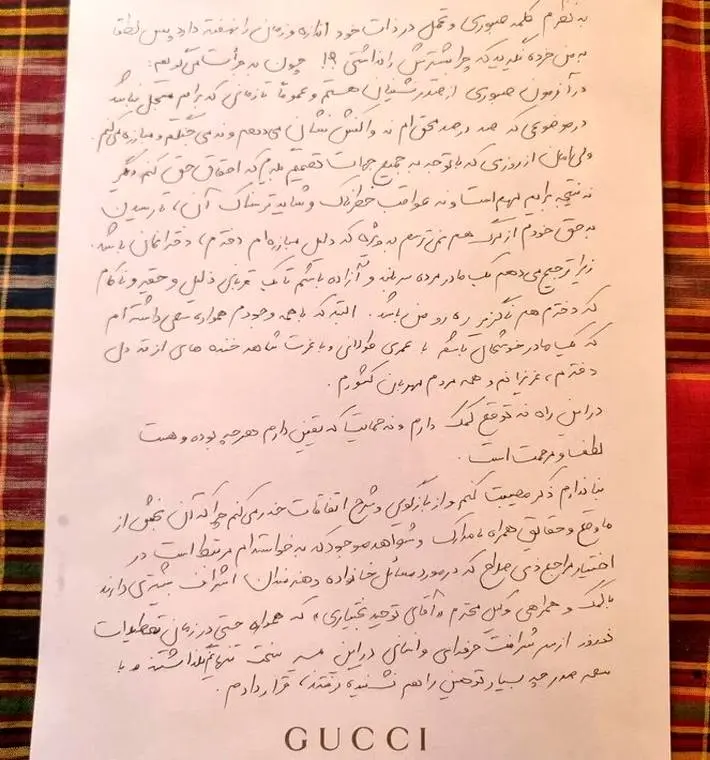 به نظرم کلمه صبوری و تحمل در ذات خود اندازه و زمانی را نهفته دارد پس لطفا
به من خرده نگیرید که چرا بیشترش را نداشتی؟! چون به جرأت می‌گویم:
در آزمون صبوری از صدرنشینان هستم و عموماً تا زمانی که برایم متحمل باشد
در موضوعی که صد درصد محق‌ام نه واکنش نشان می‌دهم و نه می‌جنگم و مبارزه می‌کنم.
ولی امان از روزی که با توجه به جمیع جهات تصمیم بگیرم که احقاق حق کنم دیگر
نه نتیجه برایم مهم است و نه عواقب خطرناک و شاید ترسناک آن، تا رسیدن
به حق خودم از مرگ هم نمی‌ترسم به ویژه که دلیل مبارزه‌ام دفترم، دخترانمان باشد.
زیرا ترجیح می‌دهم یک مادر مرده سربلند و آزاده باشم تا یک قربانی ذلیل و حقیر و ناکام
که دخترم هم ناگزیر ره رو من باشد. البته که با همه وجودم همواره سعی داشته‌ام
که یک مادر خوشحال باشم با عمری طولانی و با عزت شاهد خنده های از ته دل
دخترم، عزیزانم و همه مردم مهربان کشورم.
در این راه نه توقع کمک دارم و نه حمایت که یقین دارم هر چه بوده و هست
لطف و مرحمت است.
بنا ندارم ذکر مصیبت کنم و از بازگویی و شرح اتفاقات حذر می‌کنم چرا که آن بخش از
ماوقع و حقایق همراه با مدارک و شواهد موجود که به خواسته‌ام مرتبط است در
اختیار مراجع ذی صلاح که در مورد مسائل خانواده و هنرمندان اشراف بیشتری دارند
با کمک و همراهی وکیل محترم «آقای توحید بختیاری» که همواره حتی در زمان تعطیلات
نوروز از سر شرافت حرفه‌ای و انسانی در این مسیر سخت تنهایم نگذاشتند و با
سعه صدر چه بسیار توهین را هم نشنیده گرفتند، قرار دادم.
GUCCI